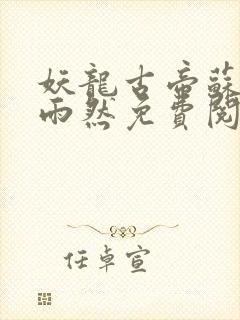 妖龍古帝蘇
雨然免費閱
任卓宣